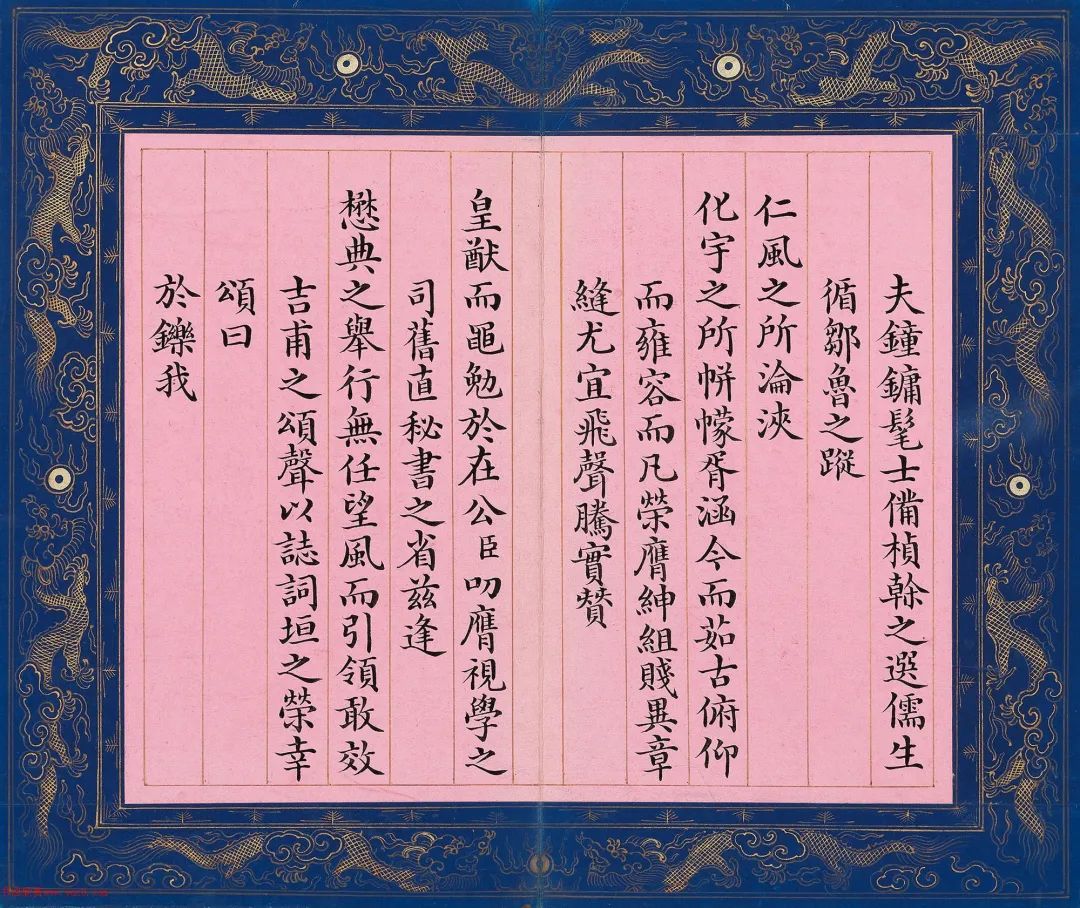 夫鐘鏞髦士備楨榦之選儒生
循鄒魯之蹤
仁風之所淪浹
化宇之所帡幪胥涵今而茹古俯仰
而雍容而凡榮膺紳組賤異章
縫尤宜飛聲騰實贊
皇猷而黽勉於在公臣叨膺視學之
司舊直秘書之省茲逢
懋典之舉行無任望風而引領敢效
吉甫之頌聲以誌詞垣之榮幸
頌曰
於鑠我